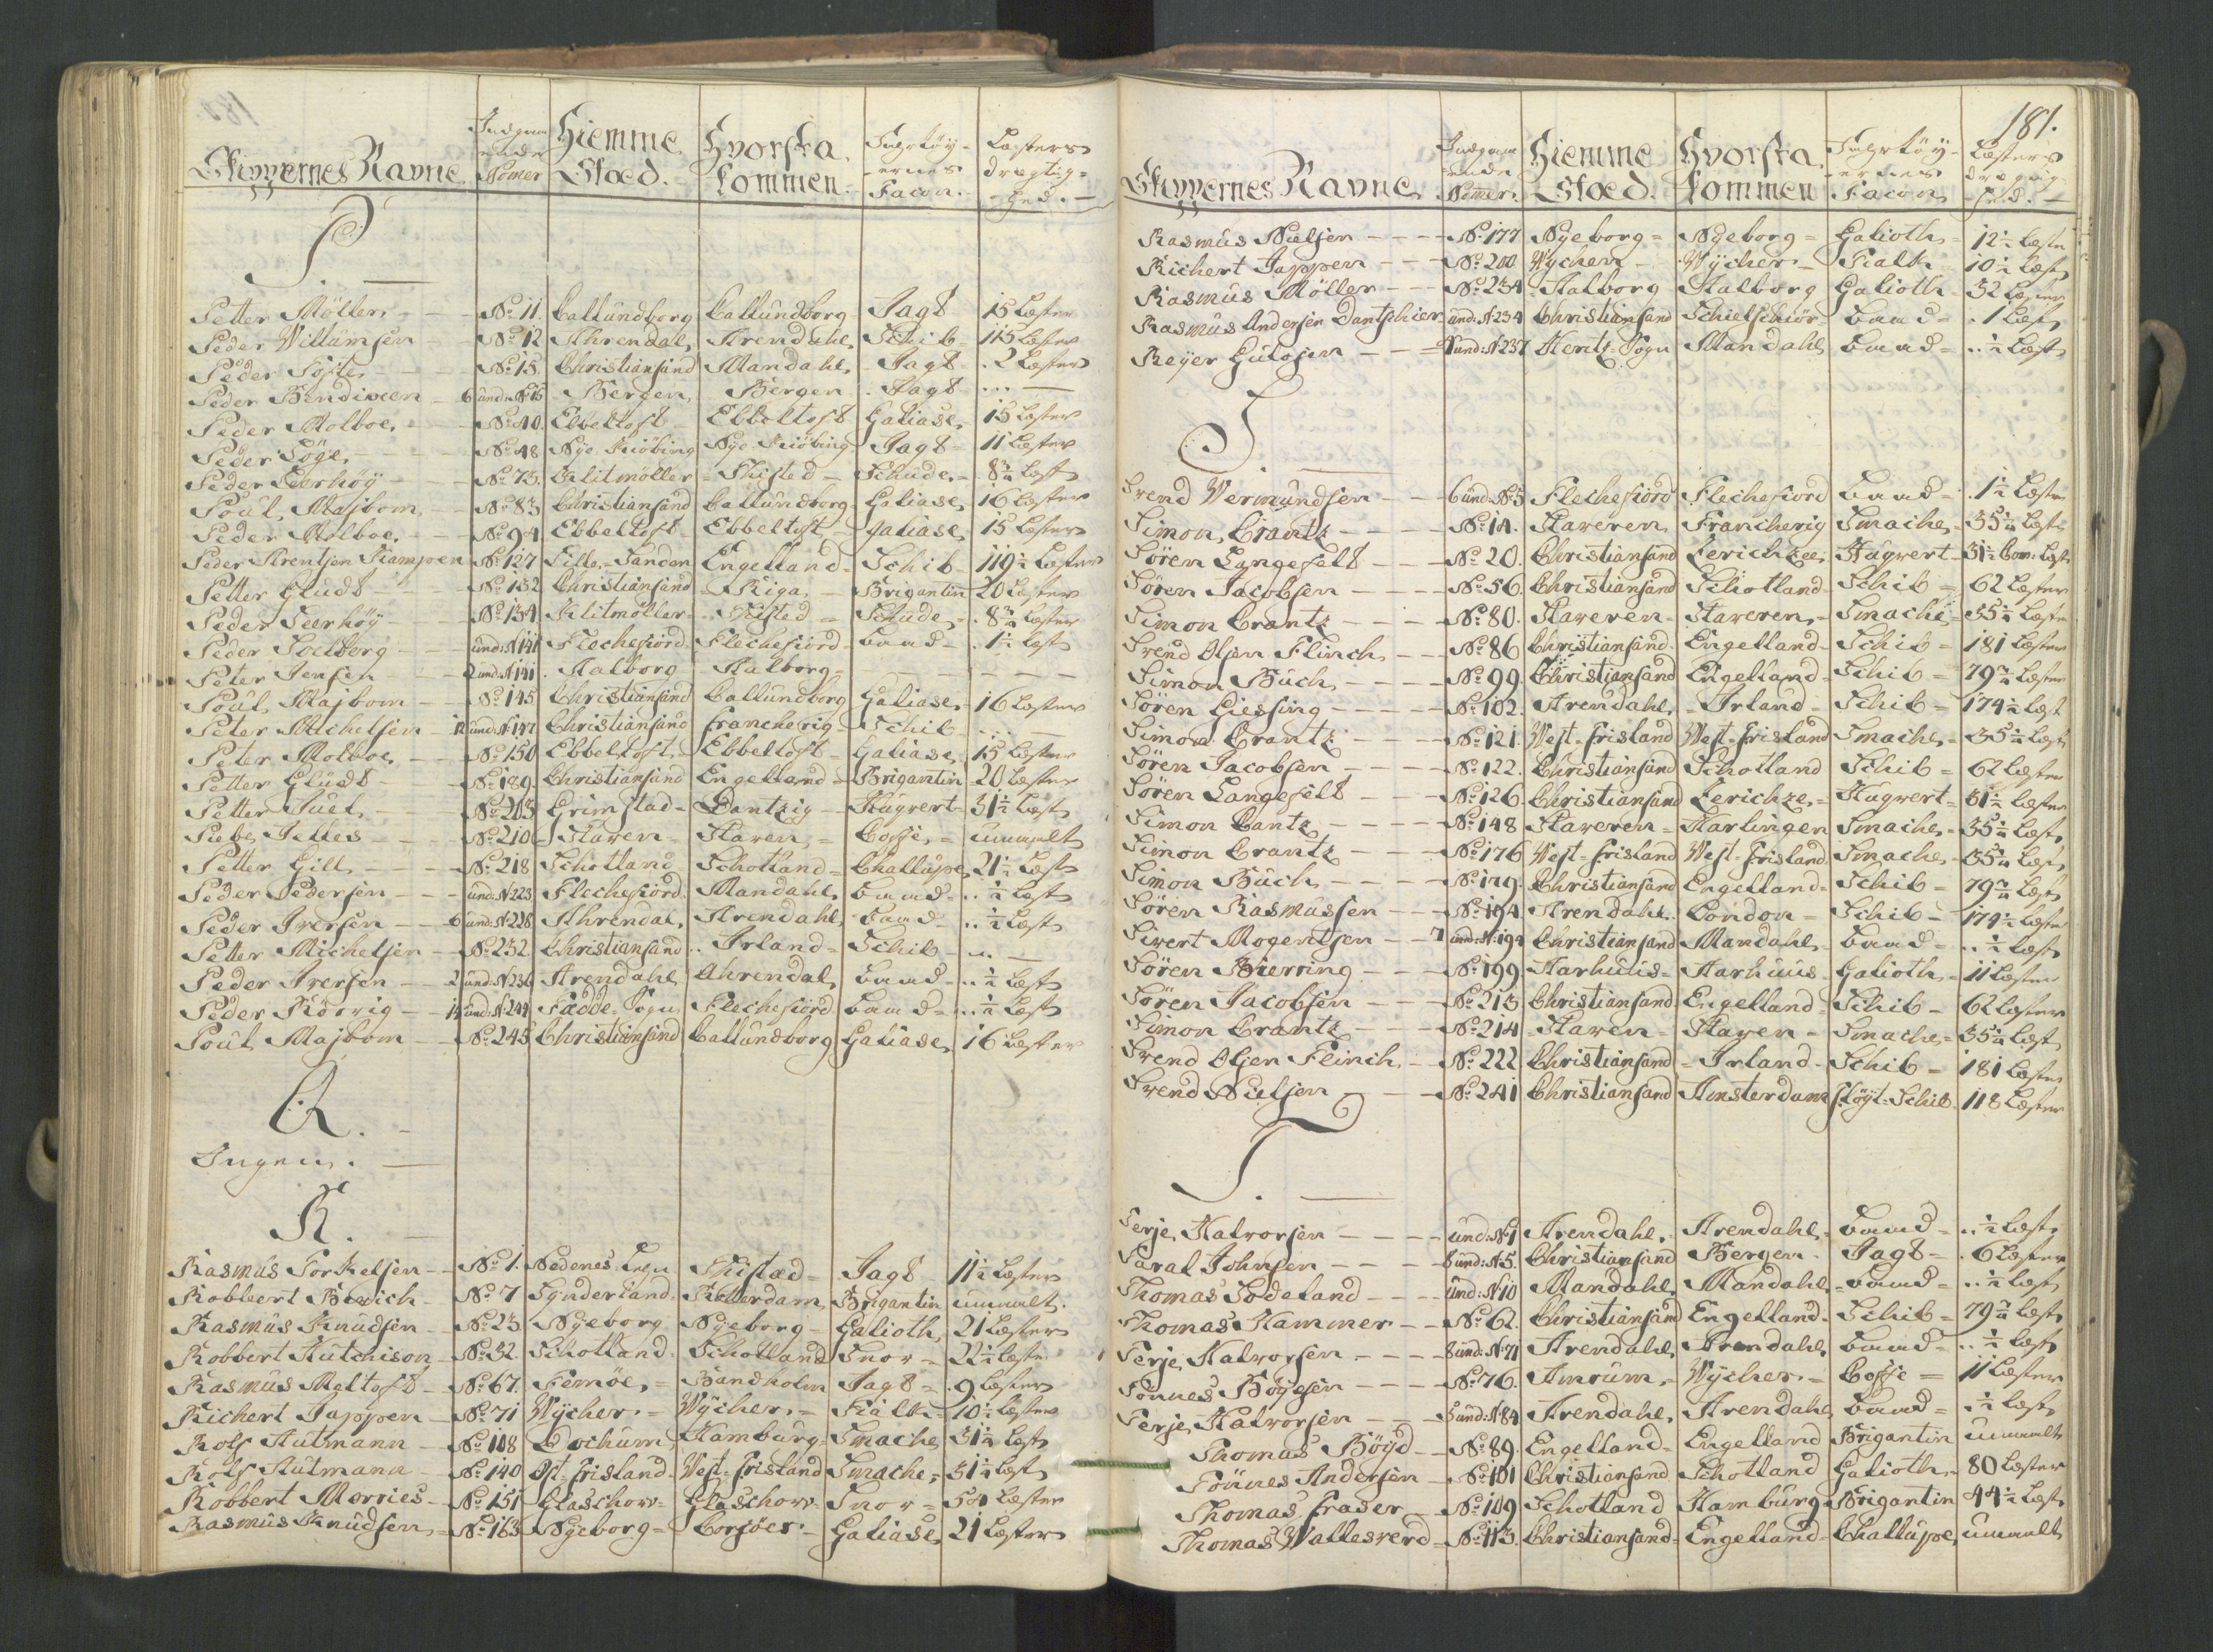 Skippernes Navne | Indgaaende Nomer | Hiemme Stæd. | Hvorfra kommen. | Fartöyernes Facon. | Læsters drægtighed.
P.
Petter Möller | No 11 | Callundborg | Callundborg | Jagt | 15 Læster
Peder Willumsen | No 12 | Ahrendal | Arendahl | Schib | 115 Læster
Peder | No 15. | Christiansand | Mandahl | Jagt | 2 Læster
Peder | 6 und: No 15 | Bergen | Bergen | Jagt | ... —
Peder Molboe | No 40. | Ebbeltoft | Ebbeltoft | Galiase | 15 Læster
Peder Söge | No 48 | Nye Kiöbing | Nye Kiöbing | Jagt | 11 Læster
Peder Seerhöy | No 73. | Klitmöller | Thisted | Schude | 8 3/4 Læst
Poul Majbom | No 83 | Christiansand | Callundborg | Galiase | 16 Læster
Peder Molboe | No 94 | Ebbeltoft | Ebbeltoft | Galiase | 15 Læster
Peder Arentsen Kampen | No 127 | Lille-Sanden | Engelland | Schib | 119 1/2 Læster
Petter Gludt | No 132 | Christiansand | Riga | Brigantin | 20 Læster
Peder Seerhöy | No 134 | Klitmöller | Thisted | Schude | 8 3/4 Læster
Peder Soelborg | und: No 141 | Flechefiord | Flechefiord | Baad | 1 1/2 Læst
Peter Jensen | 2 und: No 141 | Aalborg | Aalborg | — | —
Poul Majbom | No 145 | Christiansand | Callundborg | Galiase | 16 Læster
Peter Michelsen | 12 und: No 147 | Christiansand | Francherig | Schib | ... —
Peter Molboe | No 150 | Ebbeltoft | Ebbeltoft | Galiase | 15 Læster
Petter Gludt | No 189. | Christiansand | Engelland | Brigantin | 20 Læster
Petter Juel | No 203 | Grimstad | Dantzig | Hugvert | 31 1/2 Læst
Piebe Jelles | No 210 | Staven | Staven | Coffe | umaalt
Petter Gill | No 218 | Schotland | Schotland | Challupe | 21 1/2 Læst
Peder Pedersen | und: No 223 | Flechefiord | Mandahl | Baad | .. 1/2 Læst
Peder Iversen | 6 und: No 228 | Ahrendal | Arendahl | Baad | .. 1/2 Læst
Petter Michelsen | No 232 | Christiansand | Irland | Schib | .. —
Peder Iversen | 2 und: No 236 | Arendahl | Ahrendal | Baad | .. 1/2 Læst
Peder Körvig | 14 und: No 244 | Fadde-Sogn | Flechefiord | Baad | .. 1/2 Læst
Poul Majbom | No 245 | Christiansand | Callundborg | Galiase | 16 Læster
Q.
Ingen.
R.
Rasmus Torkelsen | No 1. | Nedenes Lehn | Thistæd | Jagt | 11 1/2 Læster
Robbert | No 7 | Synderland | Rotterdam | Brigantin | umaalt.
Rasmus Knudsen | No 23. | Nyeborg | Nyeborg | Galioth | 21 Læster
Robbert Hutchison | No 32. | Schotland | Schotland | Snov | 22 1/2 Læster
Rasmus Meltoft | No 67. | Femöe | Bandholm | Jagt | 9 Læster
Richert Jappen | No 71 | Wycher | Wycher | | 10 1/2 Læster
Rolf Autmann | No 108 | Dochum | Hamburg | Smache | 31 1/2 Læst
Rolf Autmann | No 140 | Ost-Frisland | West-Frisland | Smache | 31 1/2 Læst
Robbert Morries | No 151 | Glaschow | Glaschow | Snov | 54 Læster
Rasmus Knudsen | No 163 | Nyeborg | Corsöer | Galiase | 21 Læster
181.
Skippernes Navne | Indgaaende Nomer. | Hiemme Stæd. | Hvorfra kommen | Fartöyernes Facon | Læsters drægtighed.
Rasmus Nielsen | No 177 | Nyeborg | Nyeborg | Galioth | 12 1/2 Læster
Richert Jappen | No 200. | Wychen | Wycher | | 10 1/2 Læst
Rasmus Möller | No 234 | Aalborg | Aalborg | Galioth | 32 Læster
Rasmus Andersen Dantschier | und: No 234 | Christiansand | Schielschiör | Baad | 1 Læst
Reyer Gulosen | und: No 237 | | Mandahl | Baad | .. 1/2 Læst
S.
Svend Vermundsen | 6 und: No 5 | Flechefiord | Flechefiord | Baad | 1 1/2 Læster
Simon Crantz | No 14. | Staveren | Francherig | Smache | 35 1/4 Læst
Sören Langefelt | No 20. | Christiansand | Zerichzee | Hugvert | 31 1/2 Com: Læst
Sören Jacobsen | No 56. | Christiansand | Schotland | Schib | 62 Læster
Simon Crantz | No 80. | Staveren | Staveren | Smache | 35 1/4 Læster
Svend Olsen Flinch | No 86 | Christiansand | Engelland | Schib | 181 Læster
Simon Buch | No 99. | Christiansand | Engelland | Schib | 79 3/4 Læster
Sören Giessing | No 102. | Arendahl | Irland | Schib | 174 1/2 Læst
Simon Crantz | No 121. | West-Frisland | West-Frisland | Smache | 35 1/4 Læst
Sören Jacobsen | No 122. | Christiansand | Schotland | Schib | 62 Læster
Sören Langefelt | No 126. | Christiansand | Zerichze | Hugvert | 31 1/2 Læster
Simon Cantz | No 148 | Staveren | Harlingen | Smache | 35 1/4 Læst
Simon Crantz | No 176 | West-Frisland | West-Frisland | Smache | 35 1/4 Læst
Simon Buch | No 179. | Christiansand | Engelland | Schib | 79 3/4 Læst
Sören Rasmussen | No 194. | Arendahl | London | Schib | 174 1/2 Læster
Sivert Mogentsen | 7 und: No 194 | Christiansand | Mandahl | Baad | .. 1/2 Læst
Sören Bierring | No 199. | Aarhuus | Aarhuus | Galioth | 11 Læster
Sören Jacobsen | No 213 | Christiansand | Engelland | Schib | 62 Læster
Simon Crantz | No 214 | Staven | Staven | Smache | 35 1/4 Læst
Svend Olsen Flinch | No 222 | Christiansand | Irland | Schib | 181 Læster
Svend Nielsen | No 241 | Christiansand | Amsterdam | flöyt-Schib | 118 Læster
T.
Terje Halvorsen | und: No 1 | Arendahl | Arendahl | Baad | .. 1/2 Læst
Taral Johnsen | 8 und: No 5. | Christiansand | Bergen | Jagt | 6 Læster
Thomas Sodeland | und: No 10 | Mandahl | Mandahl | Baad | .. 1/2 Læst
Thomas Hammer | No 62. | Christiansand | Engelland | Schib | 79 3/4 Læst
Terje Halvorsen | 8 und: No 71 | Arendahl | Arendahl | Baad | .. 1/2 Læst
Tönnes Böyesen | No 76. | Amrum | Wycher | Coffe | 11 Læster
Terje Halvorsen | 3 und: No 84 | Arendahl | Arendahl | Baad | 1/2 Læst
Thomas Böyd | No 89. | Engelland | Engelland | Brigantin | umaalt
Tönnes Andersen | No 101 | Christiansand | Schotland | Galioth | 80 Læster
Thomas Fraser | No 109 | Schotland | Hamburg | Brigantin | 44 1/2 Læst
Thomas Walleswerd | No 113. | Christiansand | Engelland | Challupe | umaalt